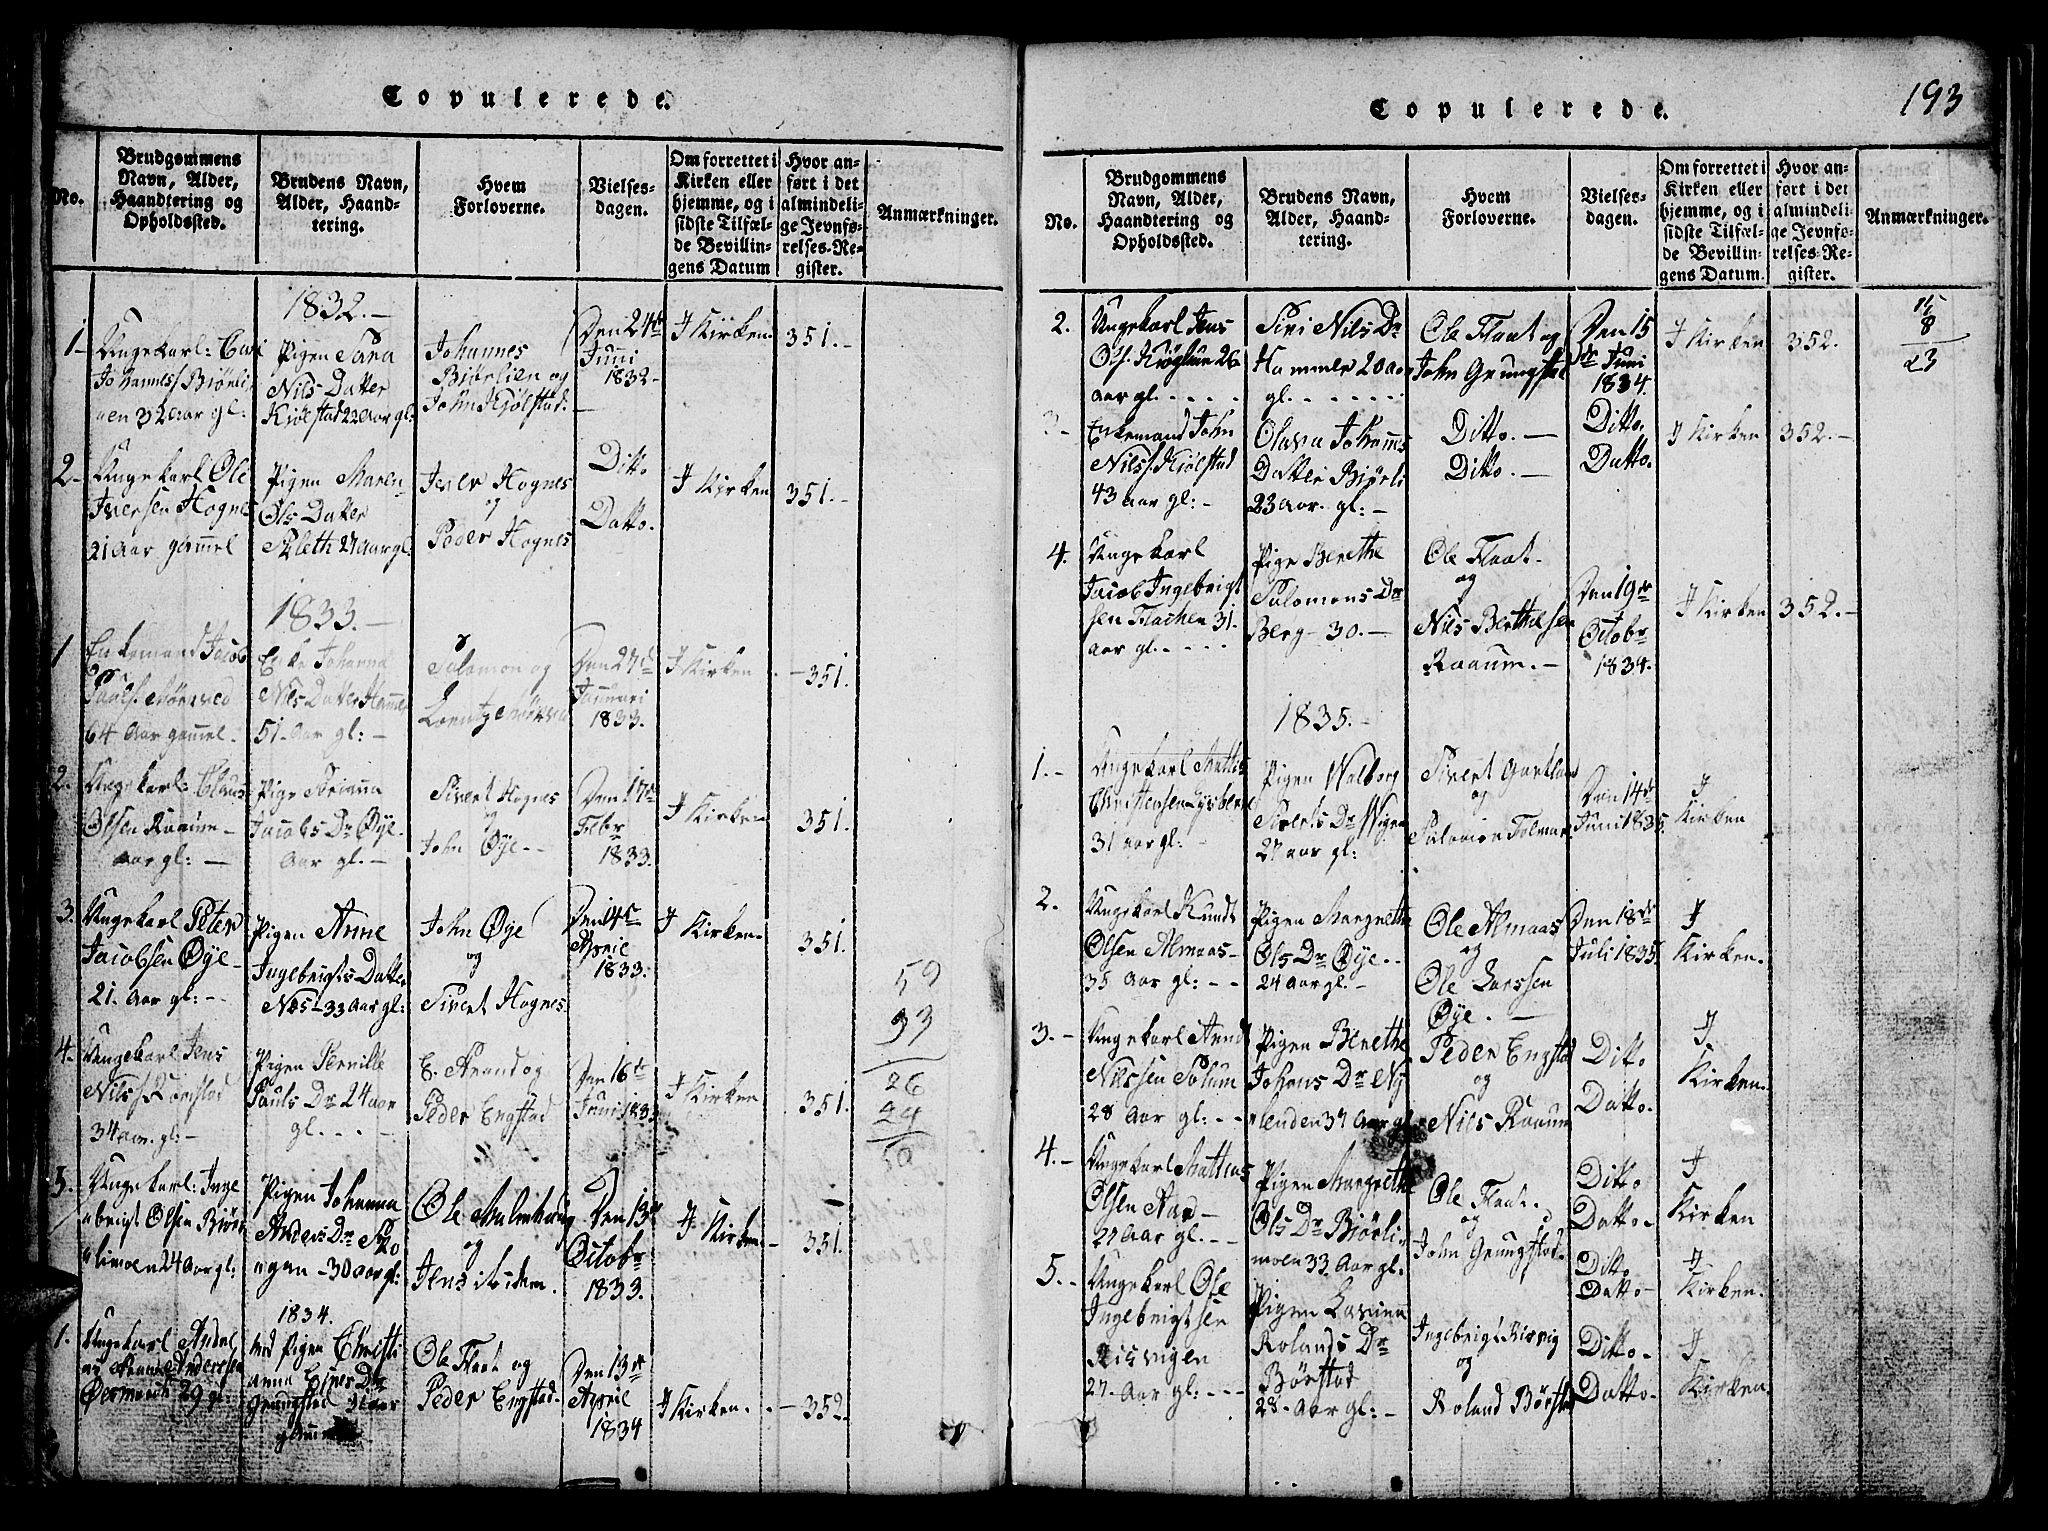 Copulerede.
No.
Brudgommens
Navn, Alder,
Haandtering og
Opholdssted.
Brudens Navn,
Alder, Haand-
tering.
Hvem
Forloverne.
Vielses-
dagen.
Om forrettet i
Kirken eller
hjemme, og i
sidste Tilfæl-
de Bevillin-
gens Datum
Hvor an-
ført i det
almindeli-
ge Jevnfø-
relses-Re-
gister.
Anmærkninger.
1832.-
1-
Ungekarl:
Johannes. Biørli
aen 32 aar gl:
Pigen Sara
Nils Datter
Kiølstad 22 aar gl:
Johannes
Biørlien og
John Kjølstad.
Den 24de
Juni
1832-
I Kirken
351.-
2-
Ungekarl Ole
Iversen Hognes
21 Aar gammel
Pigen Maren
Ols Datter
27 aar gl.
Iver Hognes
og
Peder Hognes
Ditto
Datto.
I Kirken
351.-
1833.-
1
Enkemand Jacob
64 Aar gammel.
Enke Johanna
Nils Datter Hammer
51- Aar gl:-
Salomon og
Lorentz
Den 27de
Januari
1833.
I Kirken
-351.
2.
Ungekarl: Claus
Olsen Raaum-
aar gl:-
Pige
Jacobs Dr Øye.
Aar gl.-
Sivert Hognes
og
John Øye.-
Den 17de
Febr
1833.
I Kirken
351.
3.
Ungekarl Peter
Jacobsen Øye-
21. Aar gl:-
Pigen Anne
Ingebrigts Datter
Næs-33 aar gl:
John Øye
og
Sivert Hognes
Den 14de
April
1833.
I Kirken.
351.
4.
Ungekarl Jens
Nilss.
34 aar. gl:-
Pigen
Pauls Dr 24 aar
gl.
E. Strand og
Peder Engstad
Den 16de
Juni 1833
I Kirken
351.
59
33
26
24
50
5.
Ungekarl: Inge
brigt Olsen Biør
limoen 24 Aar gl:
Pigen Johanna
Anders Dr
-30 aar gl:
Ole
og
Jens
Den 13de
Octobr
1833.
I Kirken-
351.
1834.
1.
Ungekarl
Andersen
29
med Pigen Christi
anna Dr
Grungstad 31 aar
gammel
Ole Flaat og
Peder Engstad
Den 13de
April
1834
I Kirken.
-352.
193
Copulerede.
No.
Brudgommens
Navn, Alder,
Haandtering og
Opholdssted.
Brudens Navn,
Alder, Haand-
tering.
Hvem
Forloverne.
Vielses-
dagen.
Om forrettet i
Kirken eller
hjemme, og i
sidste Tilfæl-
de Bevillin-
gens Datum.
Hvor an-
ført i det
almindeli-
ge Jevnfø-
relses-Re-
gister.
Anmærkninger.
2.
Ungekarl Jens
26
aar gl.
Siri Nils Dr
Hammer 20 aar
gl.
Ole Flaat og
John Grungstad
Den 15
de Juni
1834.
I Kirken
352.
15
8
23
3-
Enkemand John
Nilss. Kjølstad
43 aar gl:-
Olava Johannes
Datter Biørli
23 aar. gl:-
Ditto.-
Ditto.-
Ditto.
Datto.
I Kirken
352.-
4.
Ungekarl
Jacob Ingebrigt
sen 31.
aar gl.
Pige Berethe
Salomons Dr
Berg-30.-
Ole Flaat-
og
Nils Berthelsen
Raaum.-
Den 19de
Octobr
1834.
I Kirken
352.-
1835.-
1.-
Ungekarl
Christensen
31 aar gl:
Pigen Walborg
Siverts Dr
27 aar gl:
Sivert Gartland
og
Salamon
Den 14de
Juni 1835.
I
Kirken
2.
Ungekarl Knudt
Olsen Almaas-
35 Aar gl:--
Pigen Margrethe
Ols Dr Øye.-
24 aar gl.-
Ole Almaas
og
Ole Larssen
Øye.-
Den 18de
Juli 1835.
I
Kirken.
3.-
Ungekarl Arndt
Nilssen Solum
28 Aar gl:--
Pigen Berethe
Johans Dr Ny
lenden 37 Aar gl
Peder Engstad
og
Nils Raaum
Ditto
Datto.
I.
Kirken.
4.-
Ungekarl Mattias
Olsen
27 Aar gl.--
Pigen Margrethe
Ols Dr Biørli
moen 33 Aar gl.
Ole Flaat.
og
John Grungstad.
Ditto
Datto-
I
Kirken
5.-
Ungekarl Ole
Ingebrigtsen
Risvigen
27- Aar gl:---
Pigen Lavina
Rolands Dr
Børstad
28- Aar gl:-
Ingebrigt Risvig
og
Roland Børstad
Ditto
Datto-
Ditto-
Datto-
I
Kirken.
I
Kirken.